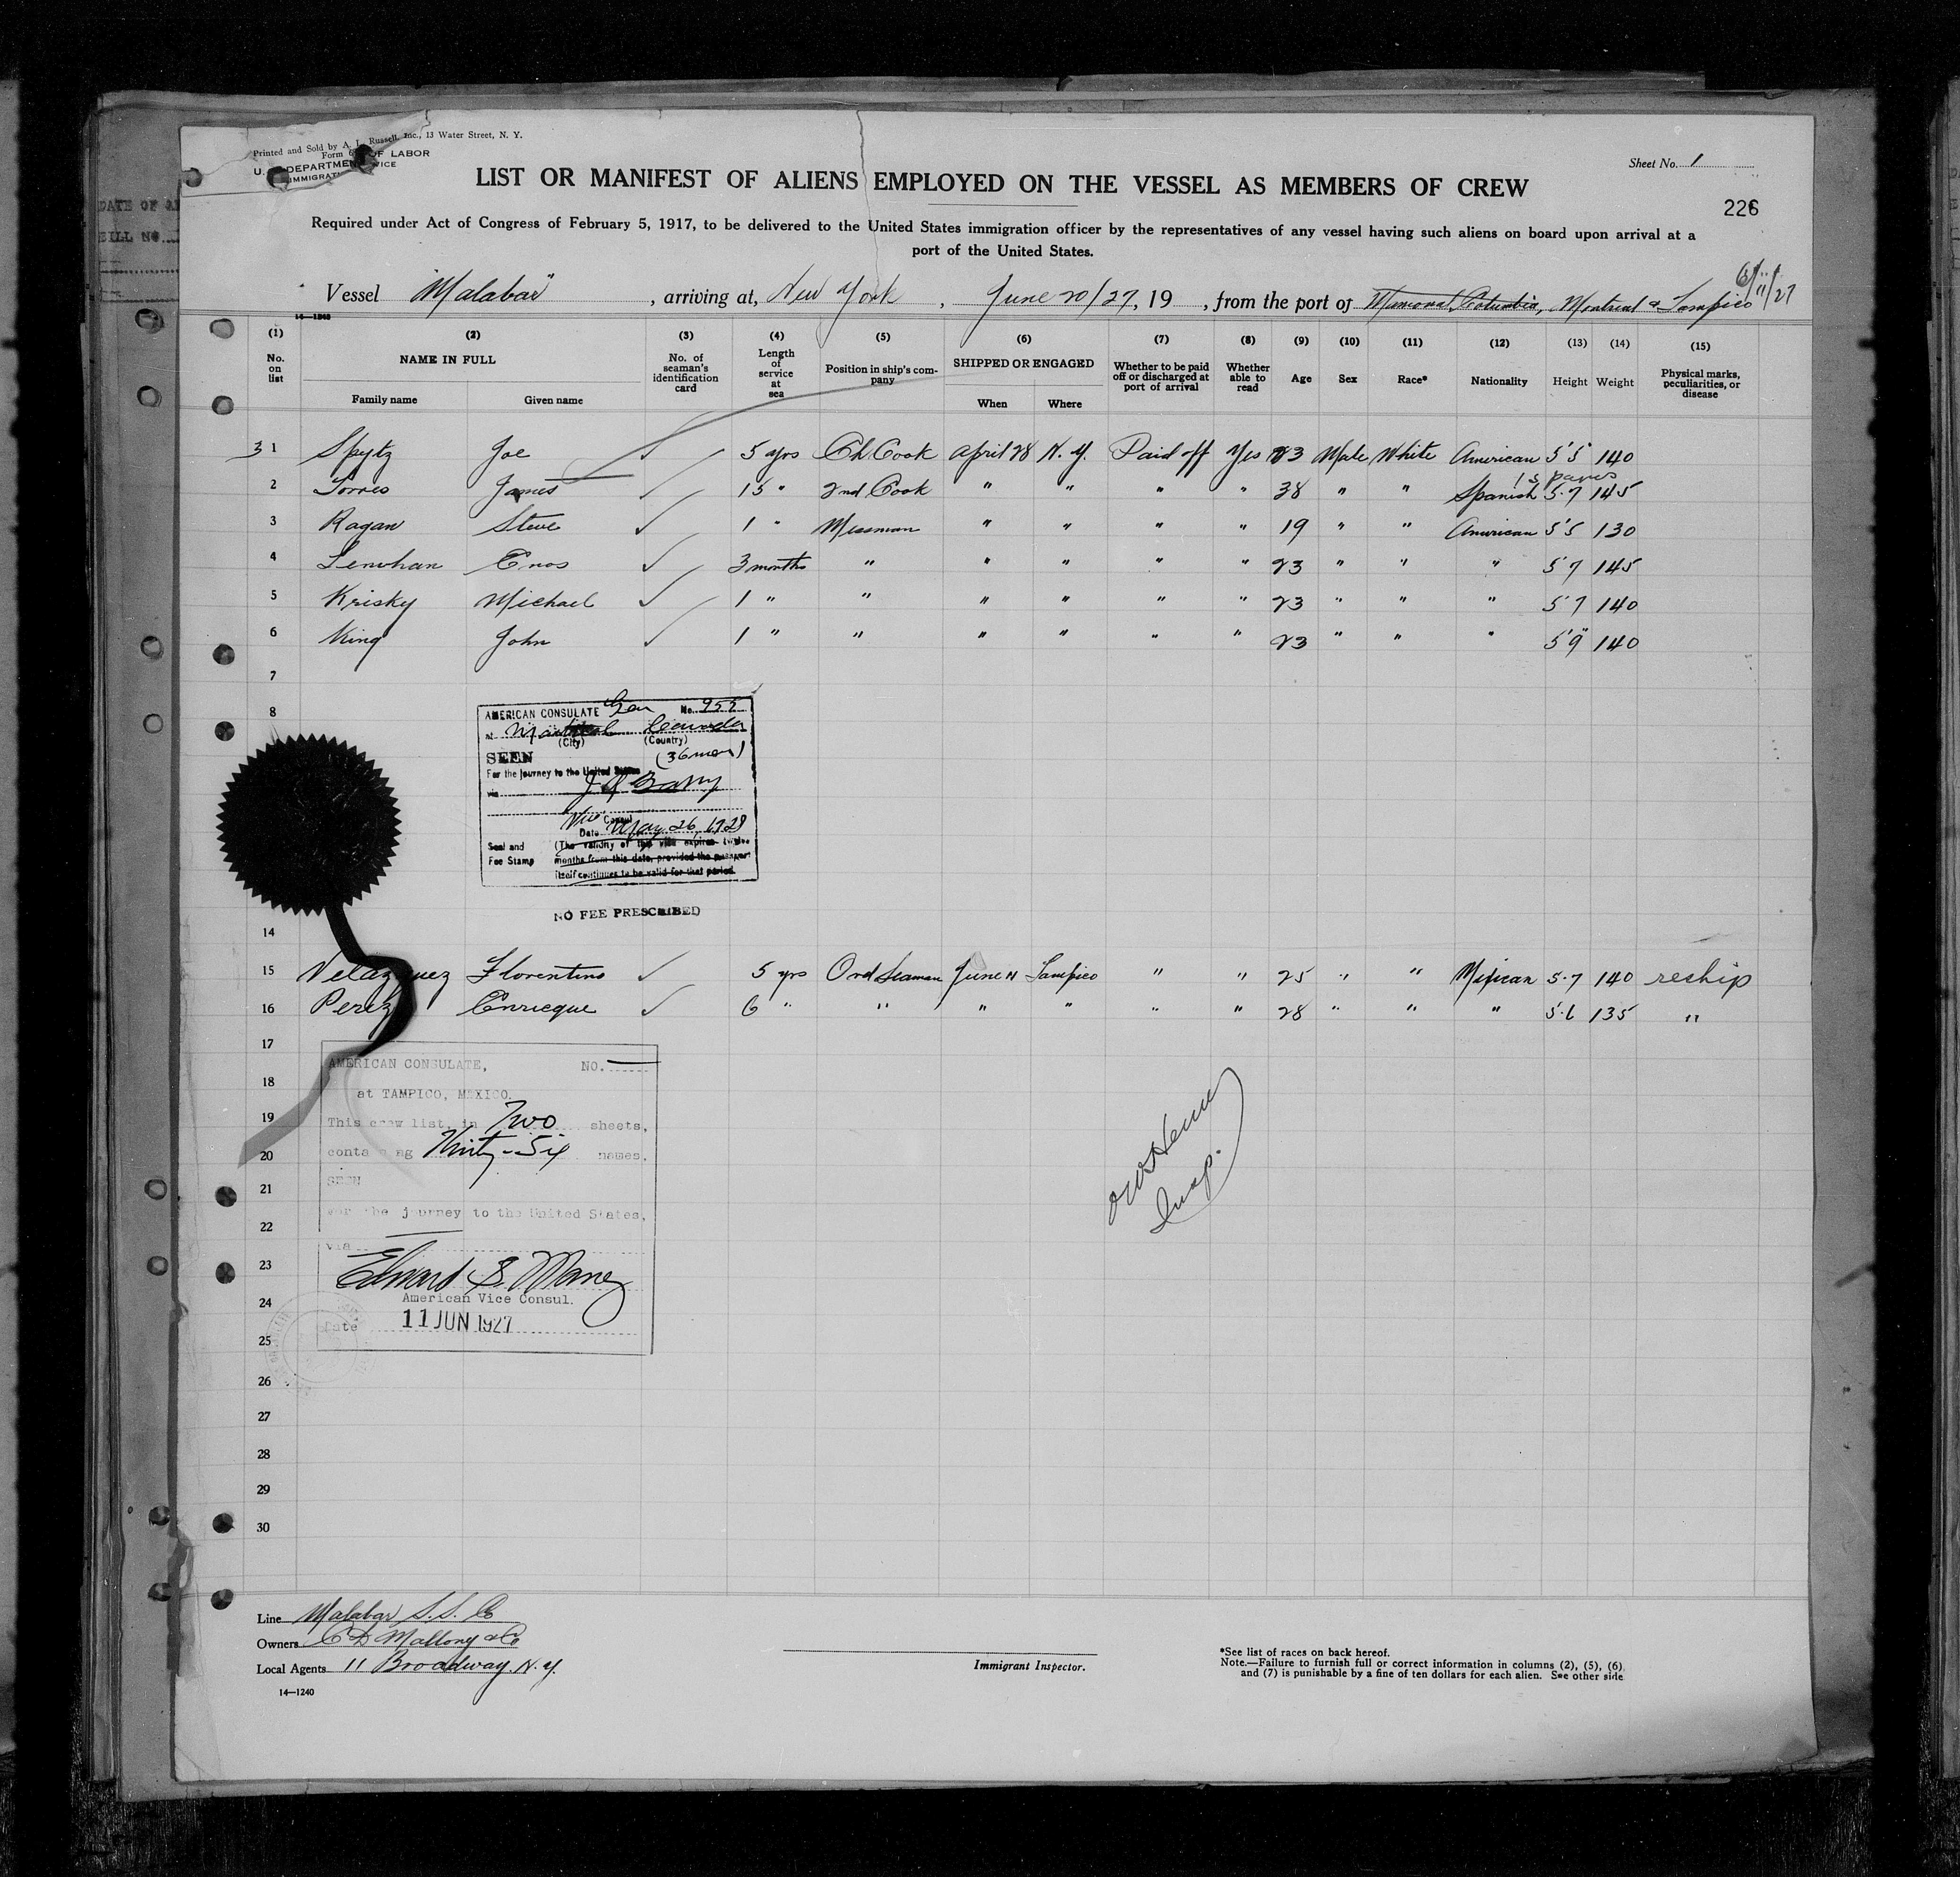 Printed and Sold by A. L. Russell, Inc., 13 Water Street, N. Y.
Form OF LABOR
U. S. DEPARTMENT
IMMIGRATION SERVICE
Sheet No. 1
LIST OR MANIFEST OF ALIENS EMPLOYED ON THE VESSEL AS MEMBERS OF CREW
226
Required under Act of Congress of February 5, 1917, to be delivered to the United States immigration officer by the representatives of any vessel having such aliens on board upon arrival at a
port of the United States.
6/11/27
Vessel "Malabar", arriving at, New York, June 20/27, 19 , from the port of Mamonal, Columbia, Montreal & Tampico
14—1240
(1) (2) (3) (4) (5) (6) (7) (8) (9) (10) (11) (12) (13) (14) (15)
No. on list NAME IN FULL Family name Given name No. of seaman's identification card Length of service at sea Position in ship's company SHIPPED OR ENGAGED When Where Whether to be paid off or discharged at port of arrival Whether able to read Age Sex Race* Nationality Height Weight Physical marks, peculiarities, or disease
3 1 Spytz Joe ✓ 5 yrs Ch. Cook April 28 N. Y. Paid off Yes 23 Male White American 5'5 140
1st papers
2 Torres James ✓ 15 " 2nd Cook " " " " 38 " " Spanish 5.7 145
3 Ragan Steve ✓ 1 " Messman " " " " 19 " " American 5'5 130
4 Lenohan Enos ✓ 3 months " " " " " 23 " " " 5'7 145
5 Krisky Michael ✓ 1 " " " " " " 23 " " " 5'7 140
6 King John ✓ 1 " " " " " " 23 " " " 5'9" 140
7
8
AMERICAN CONSULATE Gen No. 955
at Montreal Canada
(City) (Country)
SEEN (36 men)
For the journey to the United States
via
Vice Consul
Date May 26, 1927
Seal and Fee Stamp
(The validity of this visa expires twelve
months from this date, provided the passport
itself continues to be valid for that period.
NO FEE PRESCRIBED
14
15 Velazquez Florentino ✓ 5 yrs Ord Seaman June 11 Tampico " " 25 " " Mexican 5.7 140 reship
16 Perez Enricque ✓ 6 " " " " " " 28 " " " 5.6 135 "
17
AMERICAN CONSULATE, NO.
18
at TAMPICO, MEXICO.
19
This crew list, in Two sheets,
20
containing Thirty-Six names.
21
SEEN
For the journey to the United States,
22
via
23
Edward S. Maney
American Vice Consul.
24
Date 11 JUN 1927
25
Insp.
26
27
28
29
30
Line Malabar S.S. Co
Owners C D Mallory & Co
Local Agents 11 Broadway. N. Y.
14—1240
Immigrant Inspector.
*See list of races on back hereof.
Note.—Failure to furnish full or correct information in columns (2), (5), (6)
and (7) is punishable by a fine of ten dollars for each alien. See other side